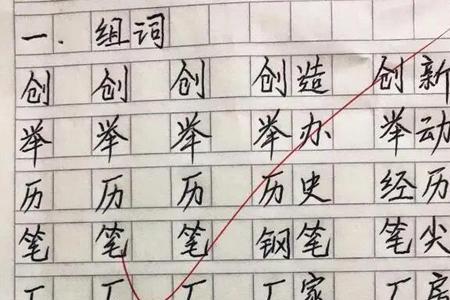 一.组词
创 创 创 创造 创新
举 举 举 举办 举动
历 历 历 历史 经历
笔 笔 笔 钢笔 笔尖
厂 厂 厂 厂家 厂房